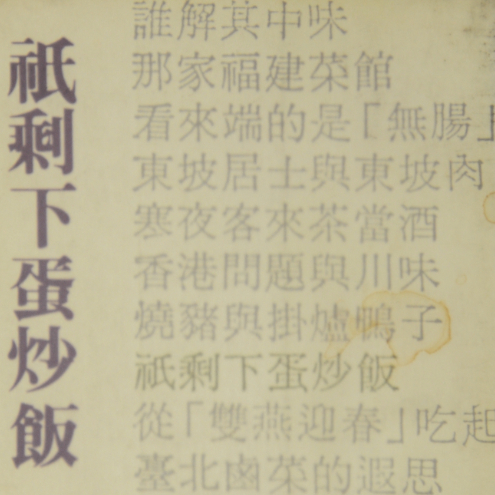 祇剩下蛋炒飯
誰解其中味
那家福建菜館
看來端的是「無腸」
東坡居士與東坡肉
寒夜客來茶當酒
香港問題與川味
燒豬與掛爐鴨子
祇剩下蛋炒飯
從「雙燕迎春」吃起
臺北鹵菜的遐思